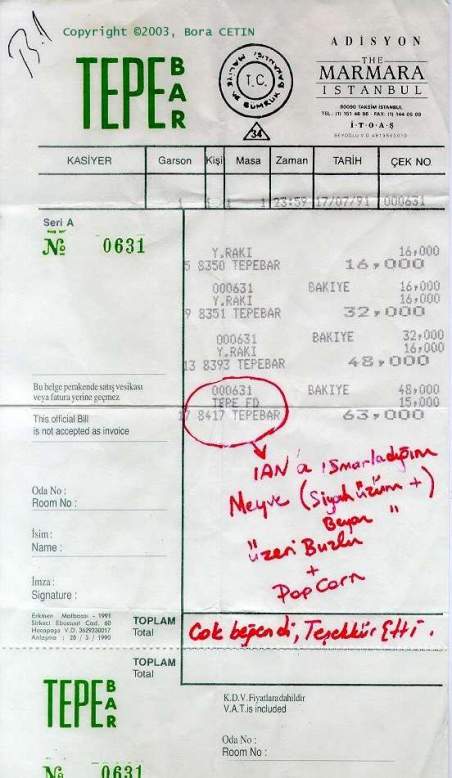 B.1
Copyright ©2003, Bora CETIN
TEPE BAR
T.C. MALİYE VE GÜMRÜK BAKANLIĞI
34
ADİSYON
THE
MARMARA
ISTANBUL
80090 TAKSİM İSTANBUL
TEL: (1) 151 46 96 - FAX: (1) 144 05 09
İ·T·O·A·Ş
KASİYER Garson Kişi Masa Zaman TARİH ÇEK NO
1 1 1 1 23:59 17/07/91 000631
Seri A
No 0631
Y.RAKI 16,000
5 8350 TEPEBAR 16,000
000631 BAKIYE 16,000
Y.RAKI 16,000
9 8351 TEPEBAR 32,000
000631 BAKIYE 32,000
Y.RAKI 16,000
13 8393 TEPEBAR 48,000
000631 BAKIYE 48,000
TEPE FD. 15,000
17 8417 TEPEBAR 63,000
Bu belge perakende satış vesikası
veya fatura yerine geçmez
This official Bill
is not accepted as invoice
IAN'a ısmarladığım
Meyve (Siyah üzüm +)
Beyaz "
üzeri Buzlu
+
PopCorn
Oda No :
Room No :
İsim :
Name :
İmza :
Signature :
Erkmen Matbaası - 1991
Sirkeci Ebusuut Cad. 60
Hocapaşa V.D. 3629230017
Anlaşma : 28 / 5 / 1990
TOPLAM
Total
Çok beğendi, Teşekkür Etti.
TOPLAM
Total
TEPE BAR
K.D.V. Fiyatlara dahildir
V.A.T. is included
Oda No :
Room No :
No 0631